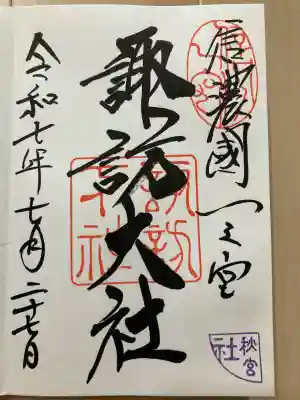 信濃國一之宮
諏訪大社
諏訪大社
令和七年七月二十七日
秋宮
社